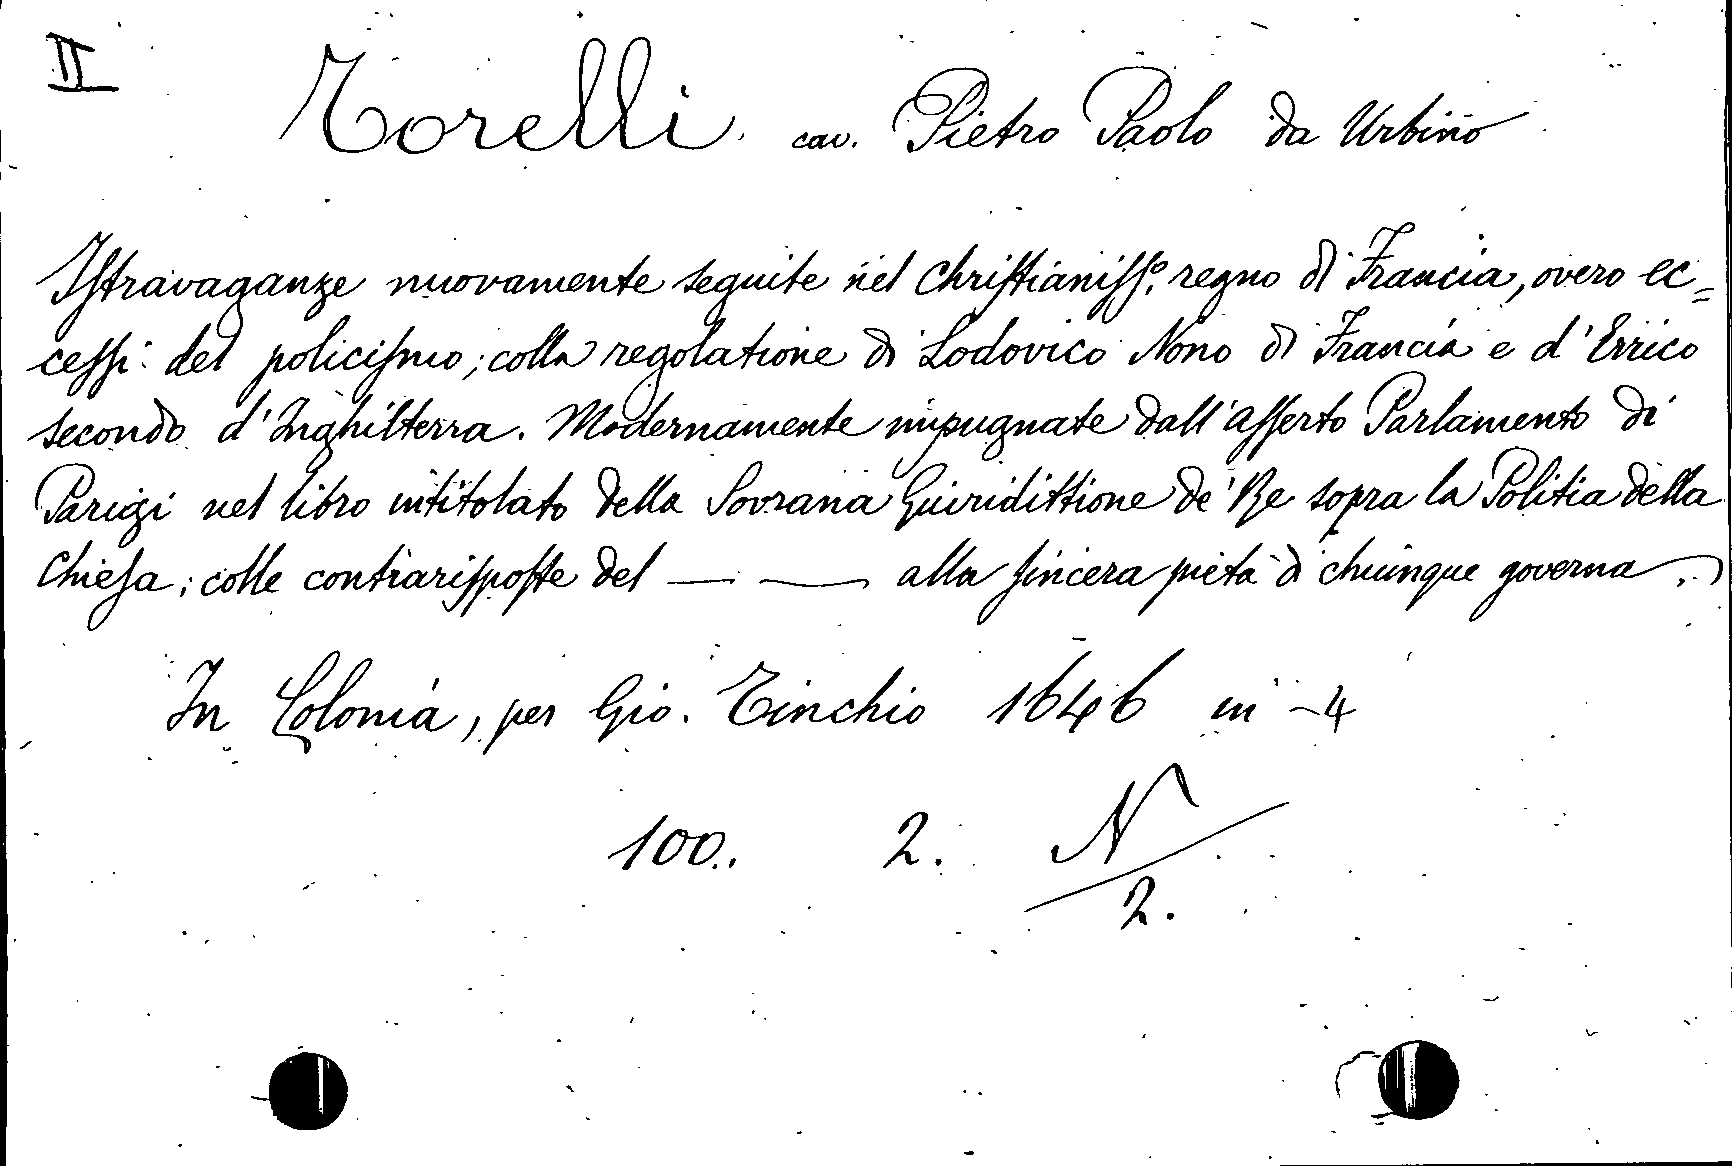 II
Torelli cav. Pietro Paolo da Urbino
Istravaganze nuovamente seguite nel Christianiss.º regno di Francia, overo ec=
cessi del policismo; colla regolatione di Lodovico Nono di Francia e d'Errico
secondo d'Inghilterra. Modernamente impugnate dall'asserto Parlamento di
Parigi nel libro intitolato della Sovrana Guiridittione de' Re sopra la Politia della
Chiesa; colle contrarisposte del — — alla sincera pietà di chiunque governa.
In Colonia, per Gio. Tinchio 1646 in-4
100. 2. N/2.